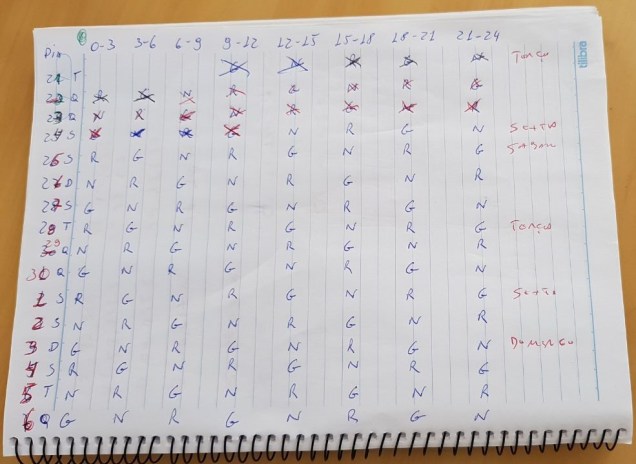 Dia 0-3 3-6 6-9 9-12 12-15 15-18 18-21 21-24
21 T Terça
22 Q
23 Q
24 S N R G N Sexta
25 S R G N R G N R G
26 D N R G N R G N R
27 S G N R G N R G N
28 T R G N R G N R G Terça
29 Q N R G N R G N R
30 Q G N R G N R G N
1 S R G N R G N R G Sexta
2 S N R G N R G N R
3 D G N R G N R G N Domingo
4 S R G N R G N R G
5 T N R G N R G N R
6 Q G N R G N R G N
tilibra